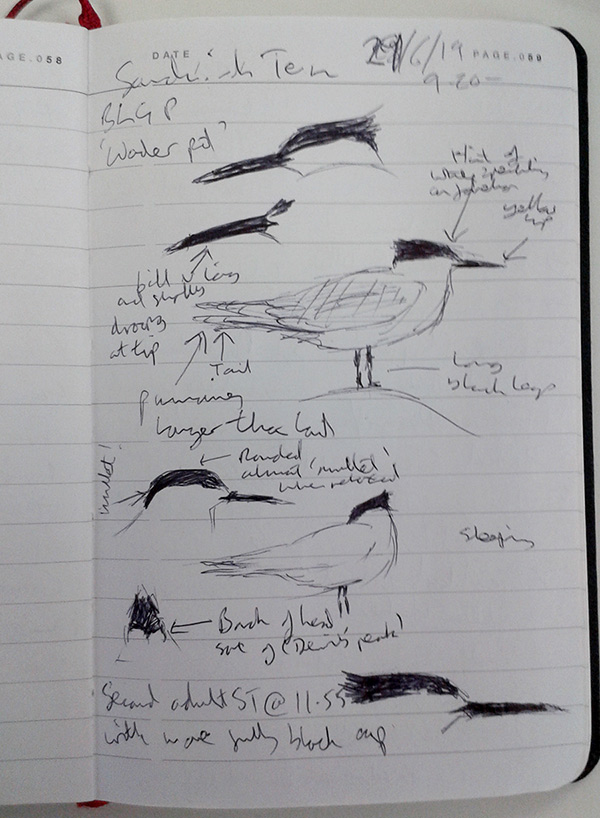 PAGE.058
DATE
29/6/19
PAGE.059
Sandwich Tern
9.20
BLGP
'Wader pit'
Hint of
white speckling
on forehead
yellow
tip
bill v long
and
droops
at tip
Tail
Primaries
longer than tail
long
black legs
mullet!
Rounded
almost 'mullet'
when relaxed
sleeping
Back of head
sort of 'Devil's peak'
Second adult ST @ 11.55
with more fully black cap